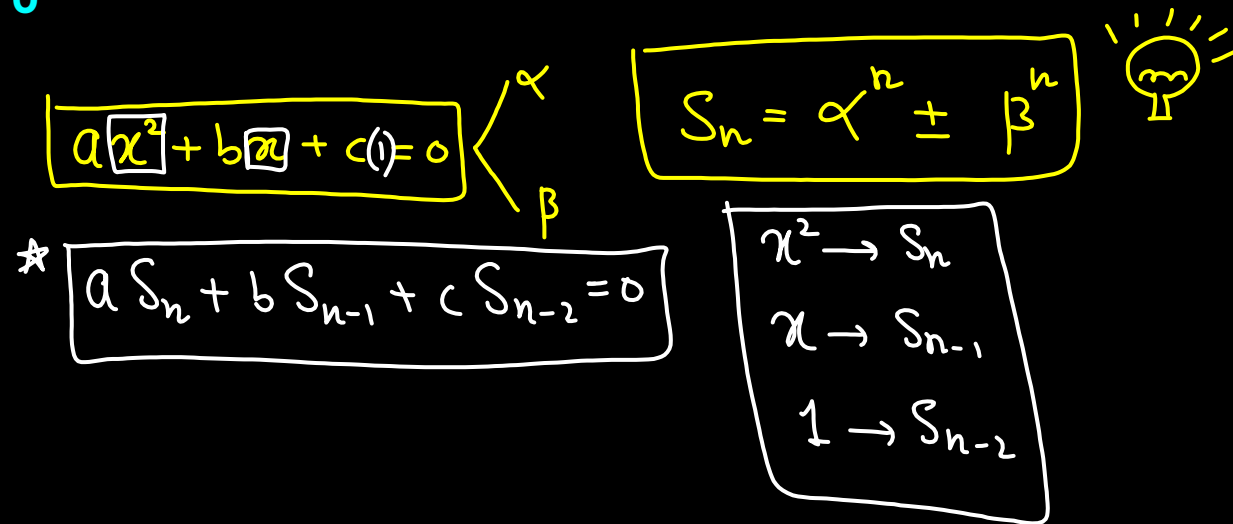 ax² + bx + c(1) = 0
α
β
Sₙ = αⁿ ± βⁿ
☆ aSₙ + bSₙ₋₁ + cSₙ₋₂ = 0
x² → Sₙ
x → Sₙ₋₁
1 → Sₙ₋₂